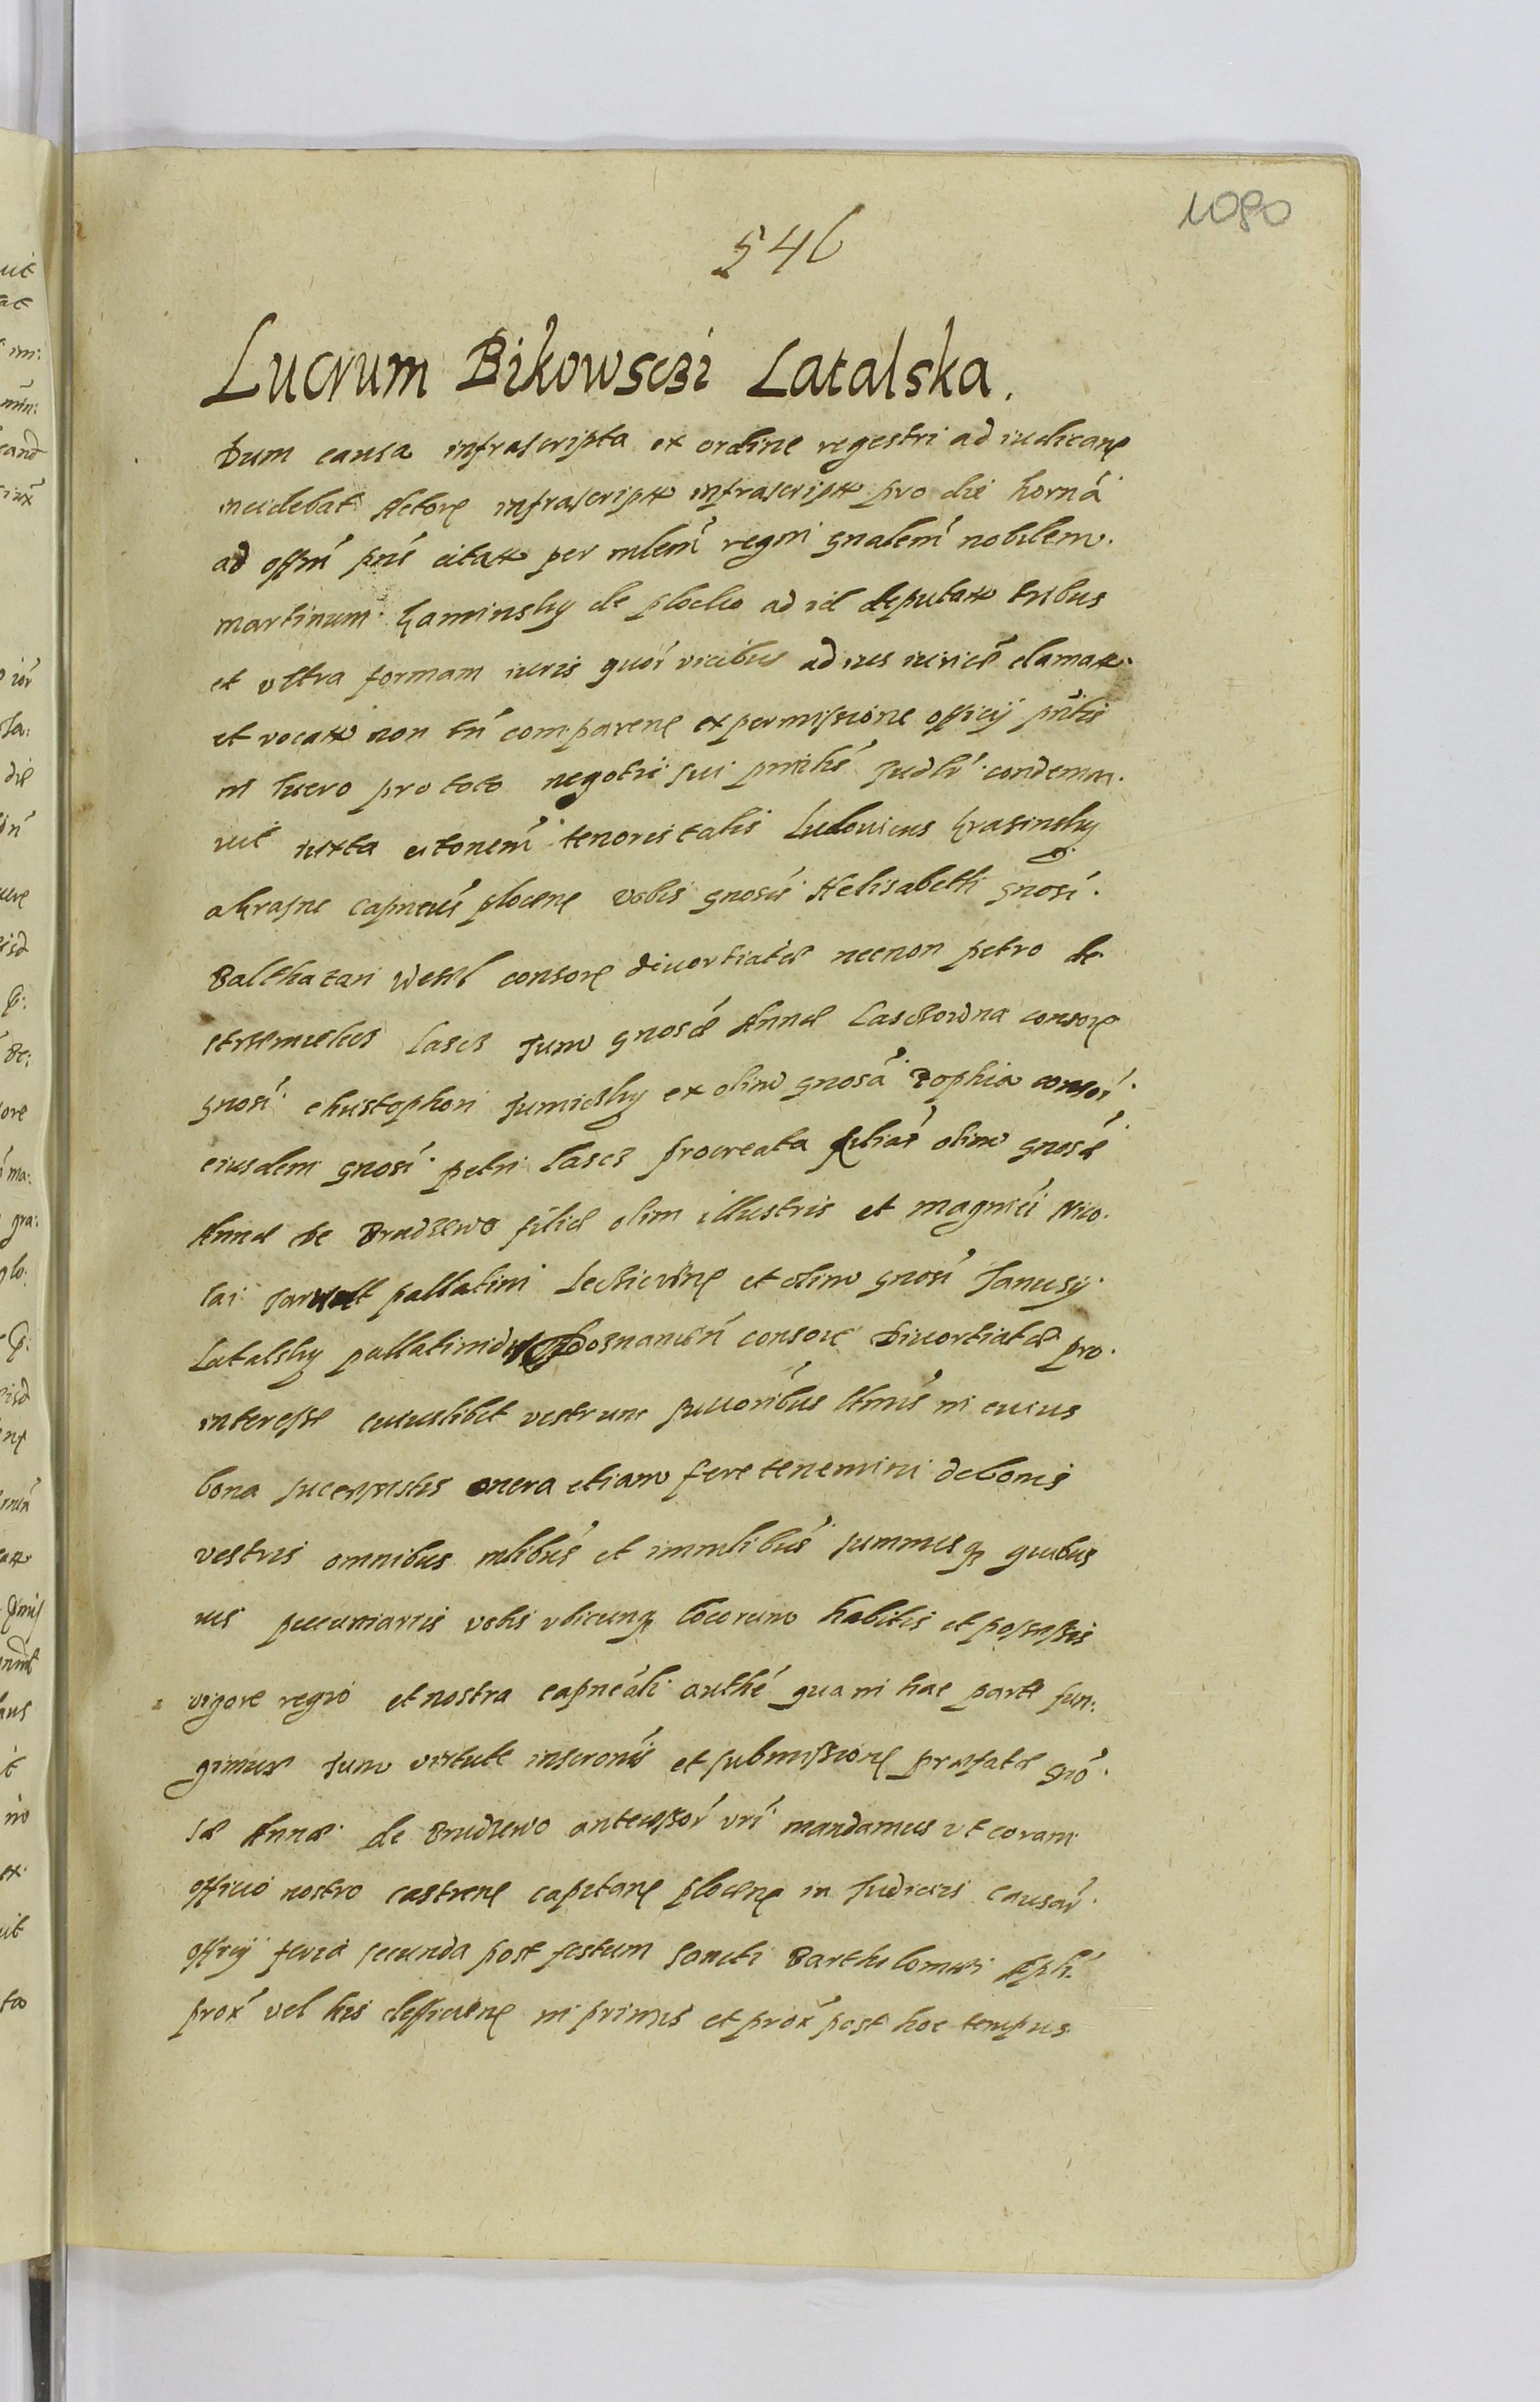 1080
546
Lucrum Bikowsczi Latalska.
Dum causa infrascripta ex ordine regestri ad iudicanꝭ
incidebat Actorꝭ infrascript infrascript pro die horná
ad offm pns citatt per mlem regni gnalem nobilem.
martinum Kaminsky de plocko ad id deputatt tribus
et vltra formam iuris quor vicibus ad ius iuridice clamatt.
et vocatt non tn comparenꝭ ex permissione officij pntis
in lucro pro toto negotii sui Judlr condemna.
uit iuxta citonem tenoris talis Ludouicus Krasinsky
a krasne capneus plocenꝭ vobis gnosis Helisabeth gnosi.
Balthazari Wesel consorꝭ diuortiatæ necnon petro de
strzemielcz Lascz Jum gnosæ Annæ Lasczowna consorꝭ
gnosi christophori Jumicsky ex olim gnosa Zophia consor.
eiusdem gnosi petri Lascz procreata filiar olim gnosæ
Annæ de Brudzewo filiæ olim illustris et magnici Nico.
lai pallatini Lecziciénꝭ et olim gnosi Janusij
Latalsky pallatinidis poznamén consore Diuortiatæ pro.
interesse cuiuslibet vestrum in cuius
bona onera etiam fere tenemini de bonis
vestris omnibus mlibus et immlibus summisqꝫ quibus
vis pecuniariis vobis vbicunqꝫ locorum habitis et possessis
vigore regio et nostra capneáli authé qua in hac parte fun.
gimur Jum virtute inscronis et submissionꝭ præfatæ gno.
sæ Annæ de Brudzewo antecessor vri mandamus vt coram
officio nostro castrenꝭ capitanꝭ plocenꝭ in Judiciis causar.
officij feria secunda post festum Sancti Bartholomæi Apli.
prox vel his defficienꝭ in primis et prox post hoc tempus